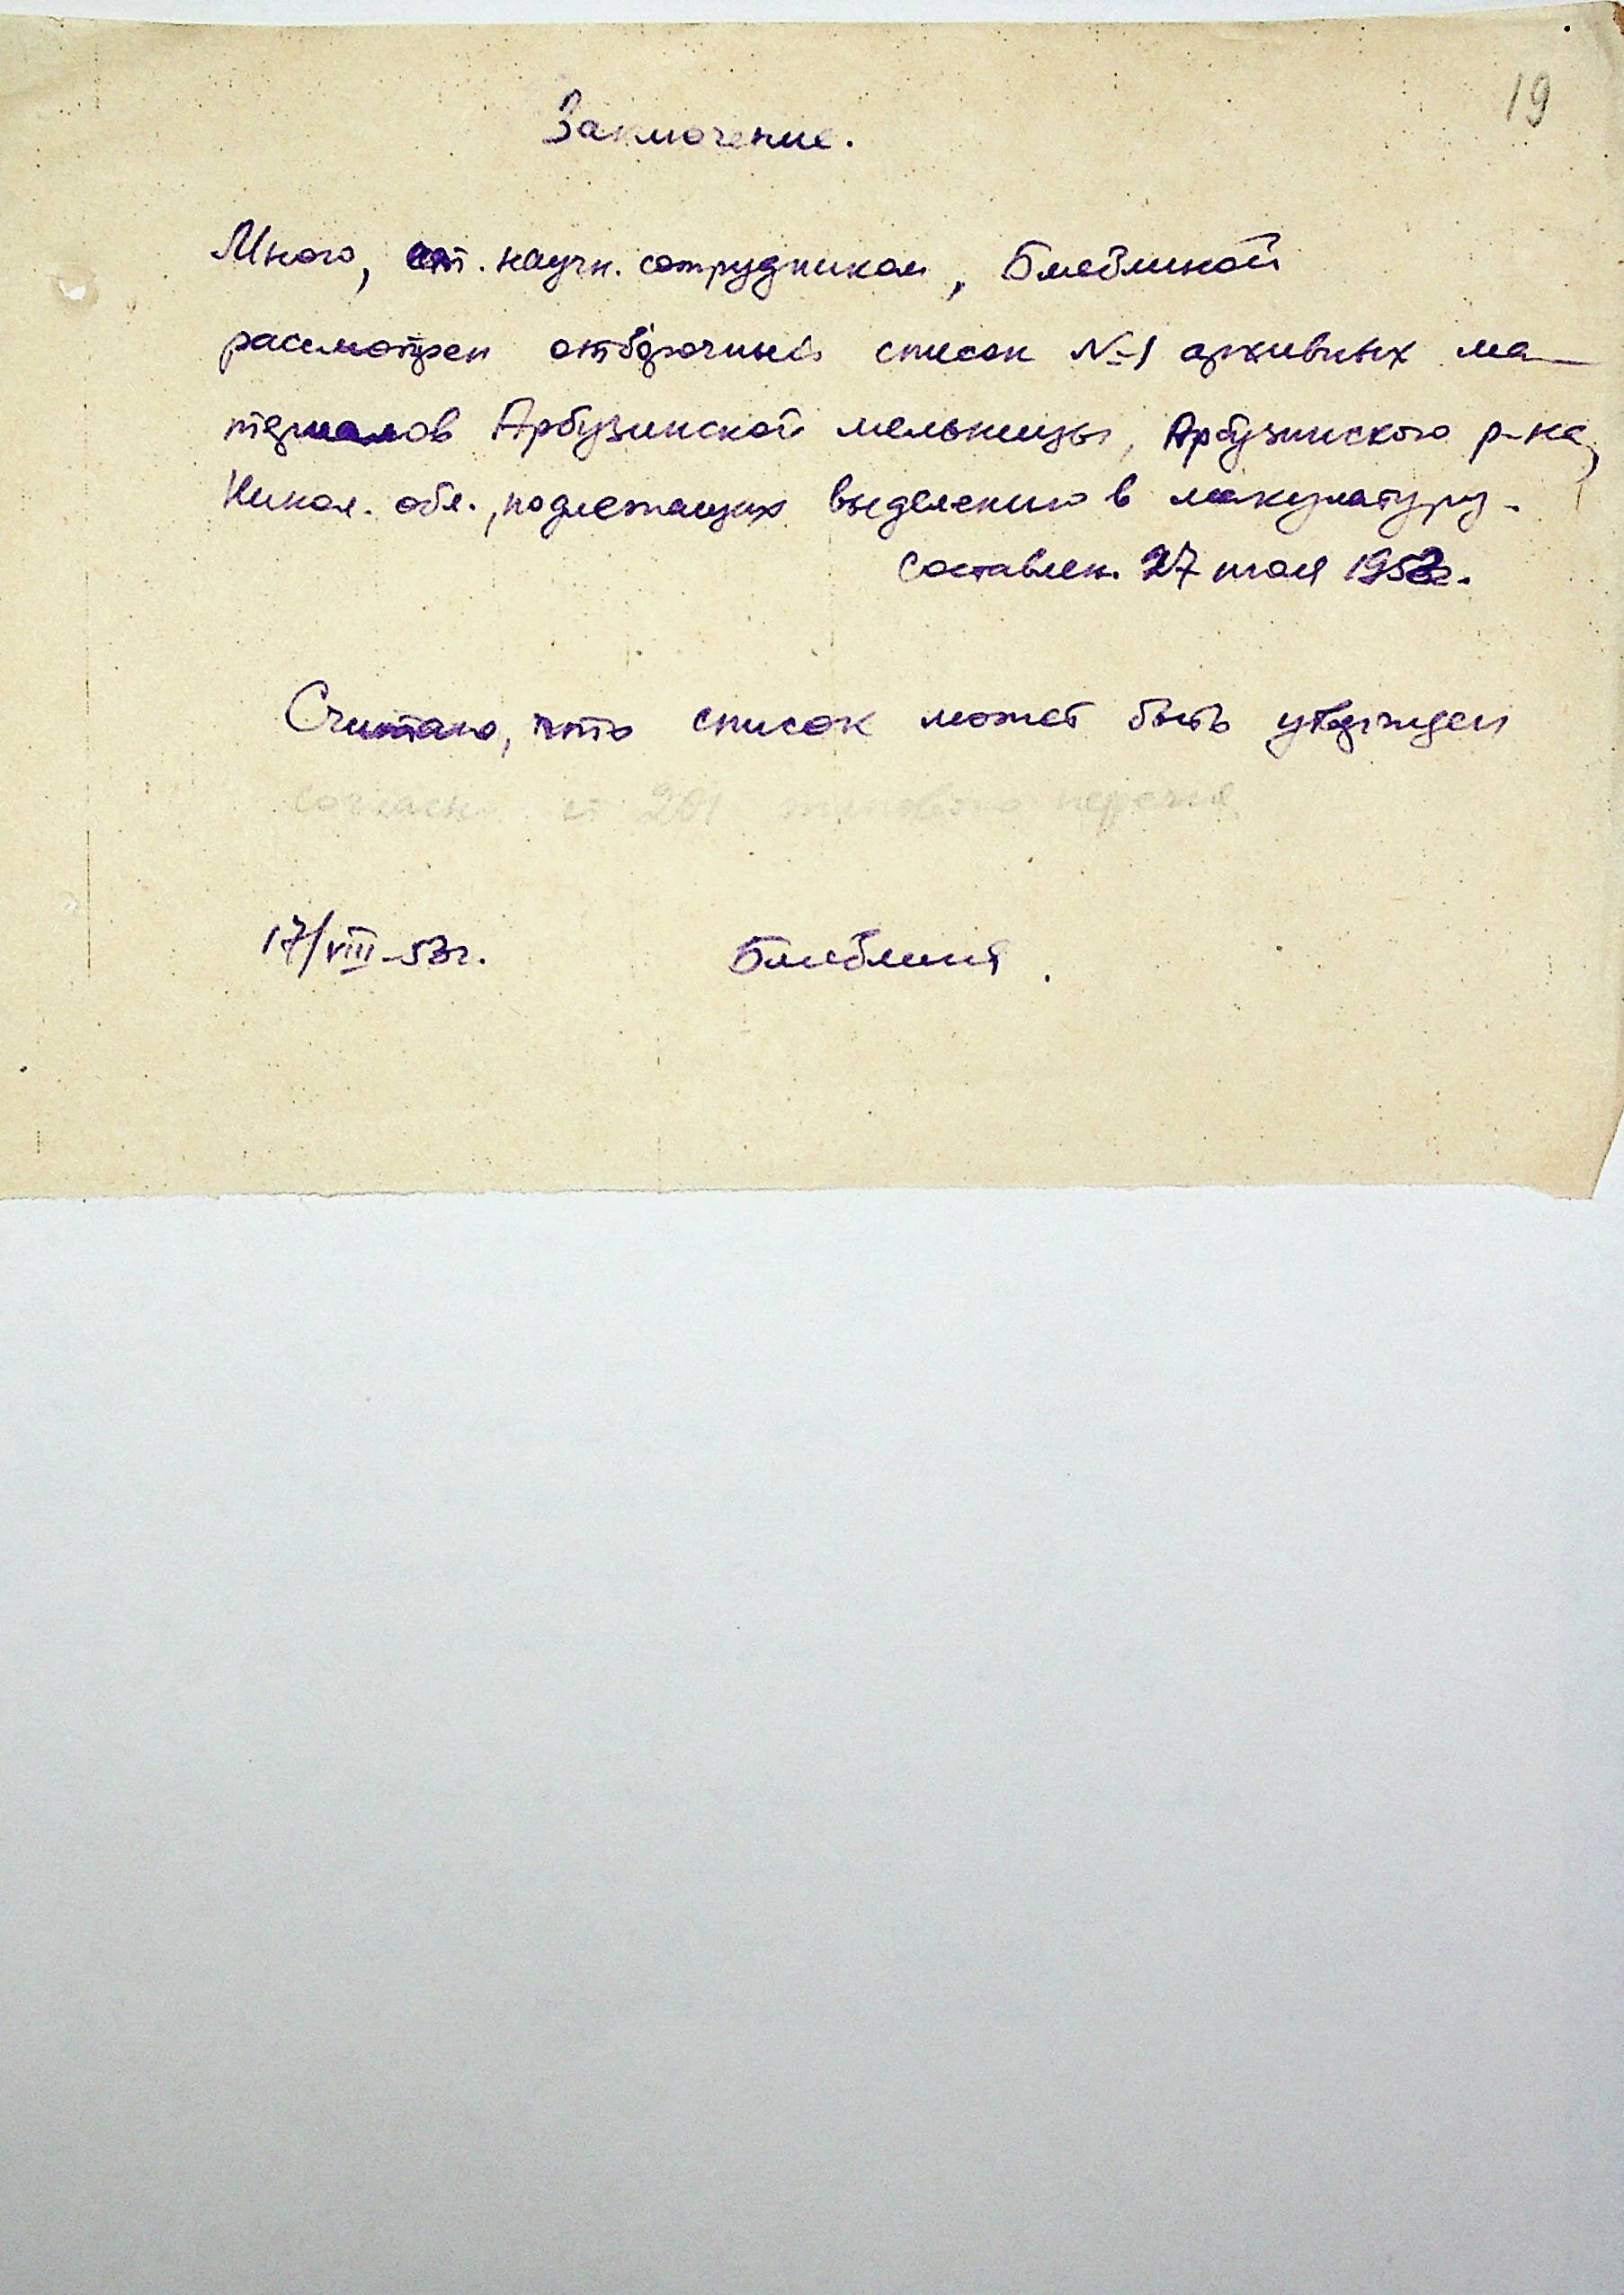 19
Заключение.
Мною, ст. научн. сотрудником,
рассмотрен отборочный список №1 архивных ма-
териалов Арбузинской мельницы, Арбузинского р-на,
Никол. обл., подлежащих выделению в макулатуру.
Составлен. 27 мая 1953г.
Считаю, что список может быть утвержден
согласно ст 201 типового перечня
17/VIII-53г.